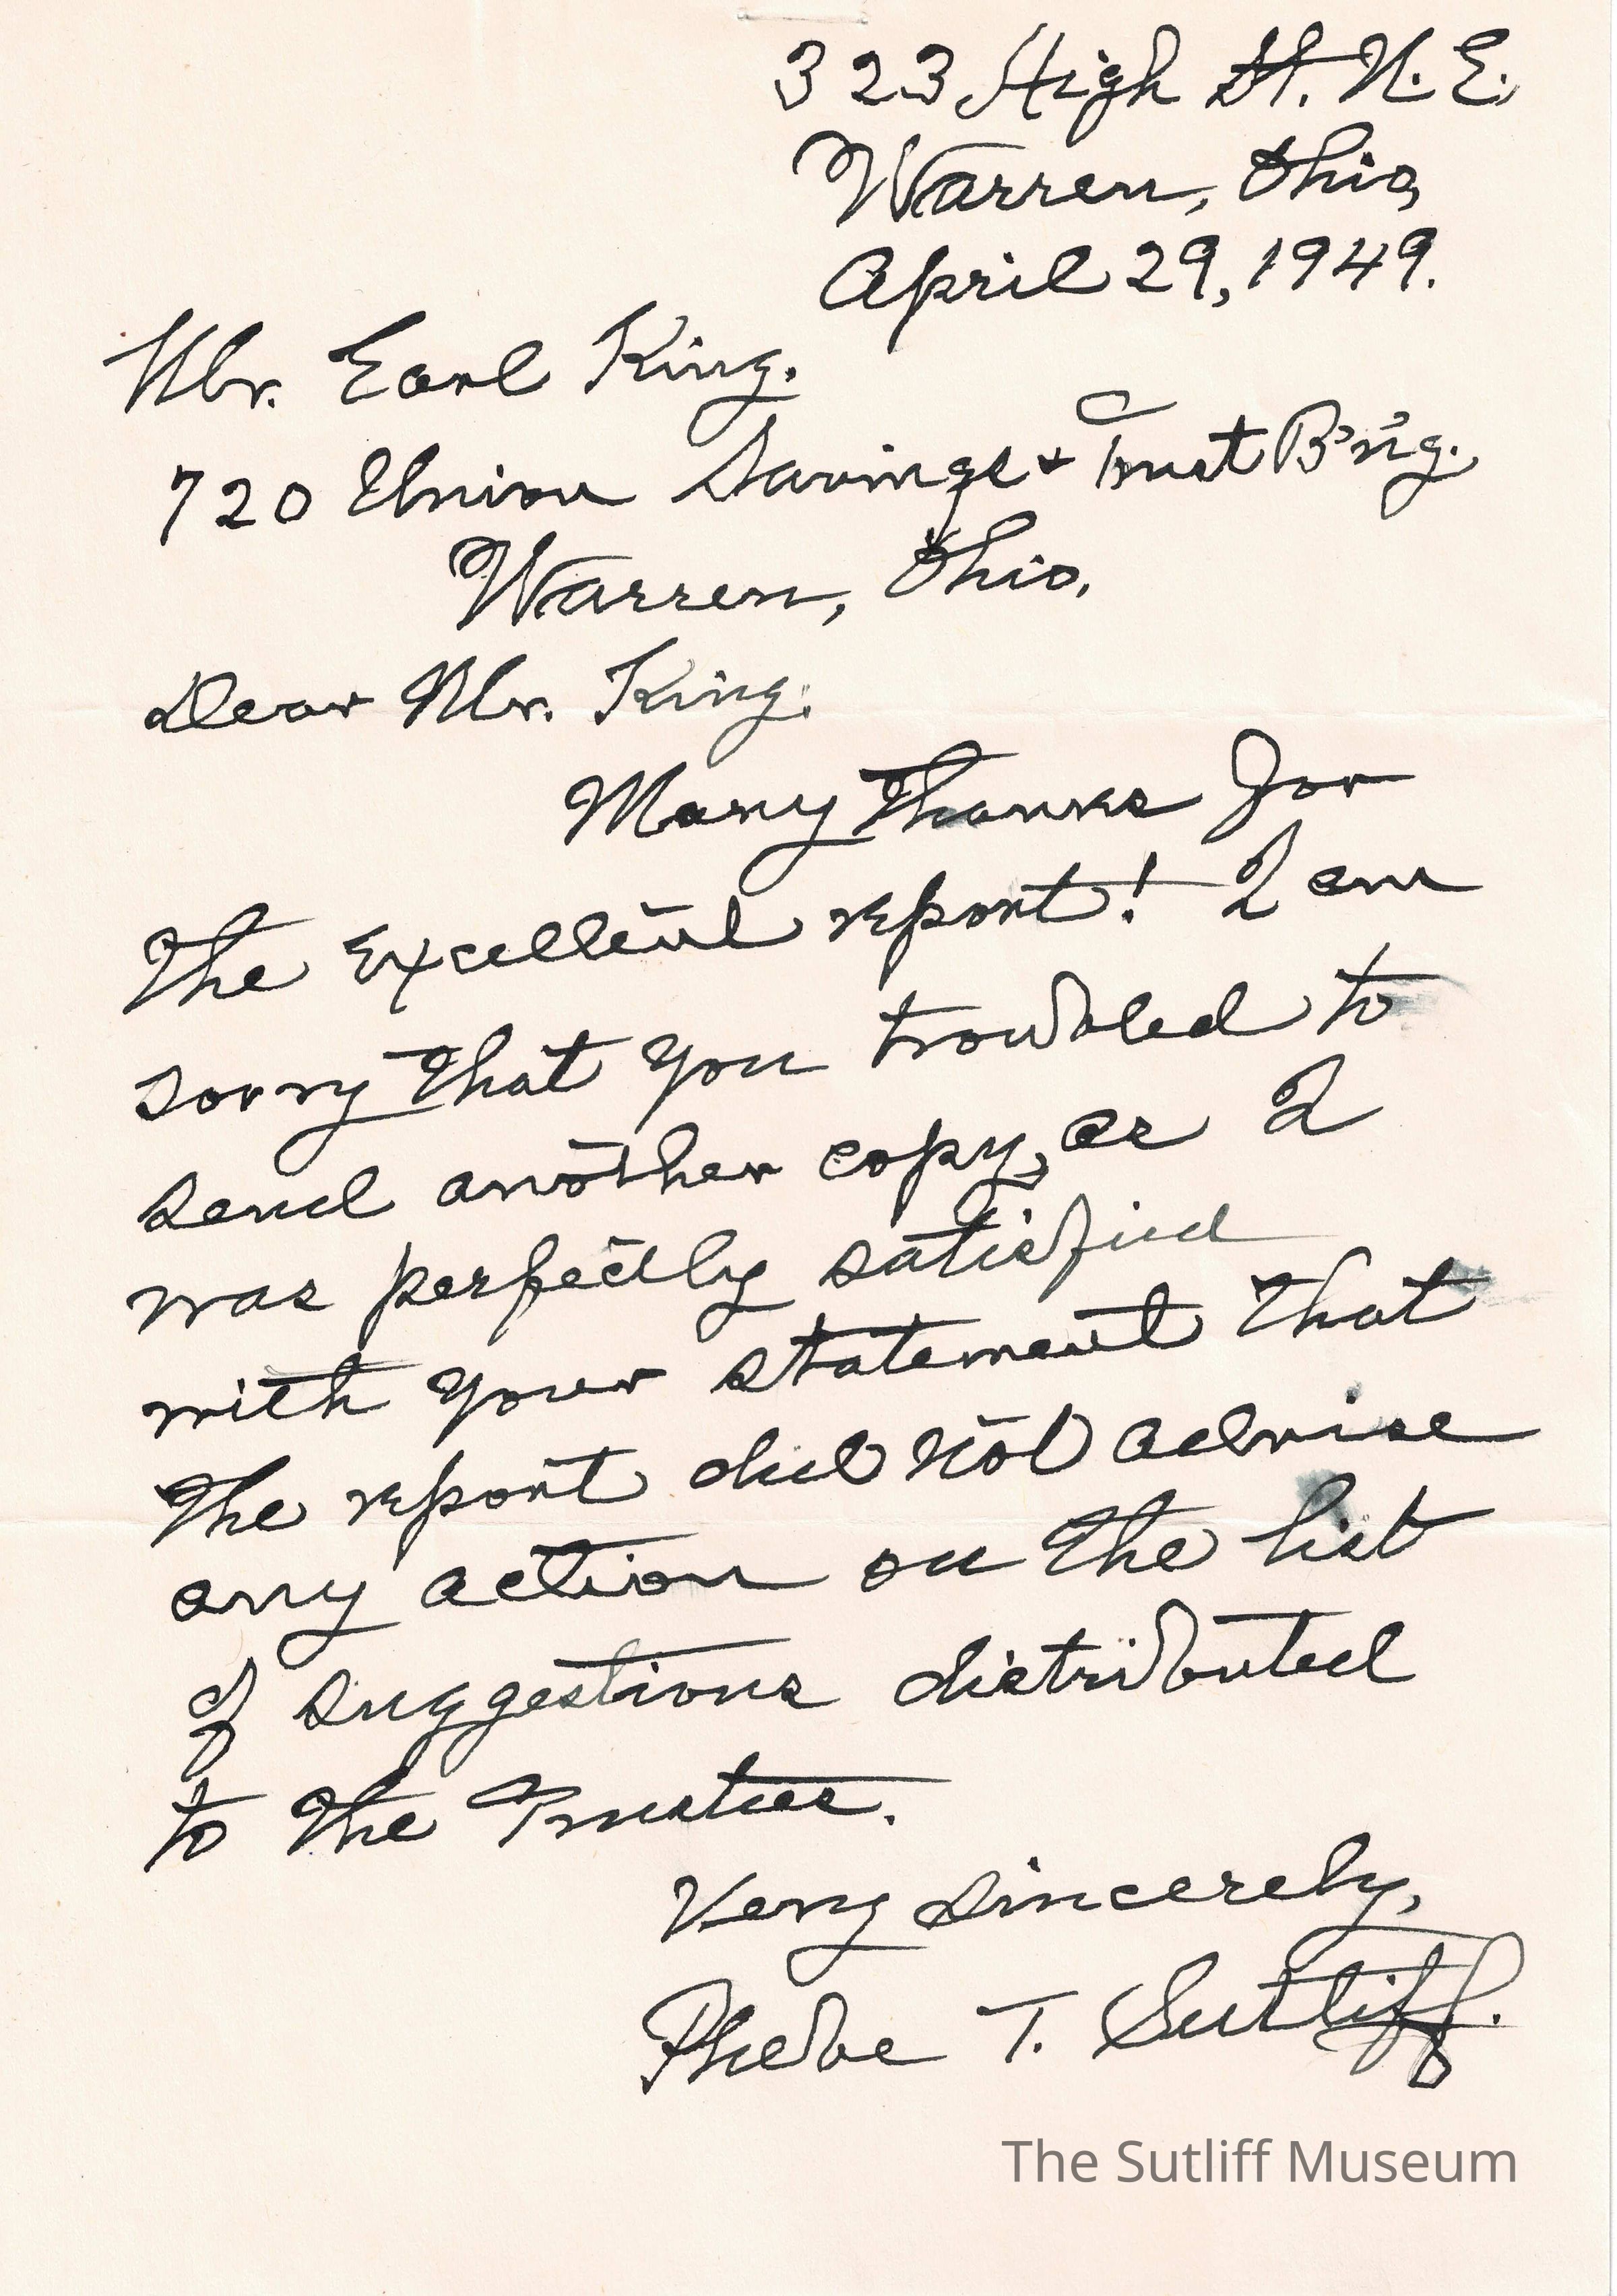 323 High St. N.E.
Warren, Ohio,
April 29, 1949.
Mr. Earl King.
720 Union Savings & Trust B'n'g.
Warren, Ohio.
Dear Mr. King:
Many thanks for
the excellent report! I am
sorry that you troubled to
send another copy, as I
was perfectly satisfied
with your statement that
the report did not advise
any action on the list
of suggestions distributed
to the Trustees.
Very sincerely,
Phebe T. Sutliff.
The Sutliff Museum